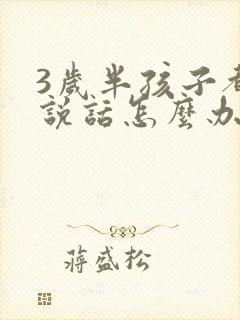 3歲半孩子
說話怎麼办
蔣盛松